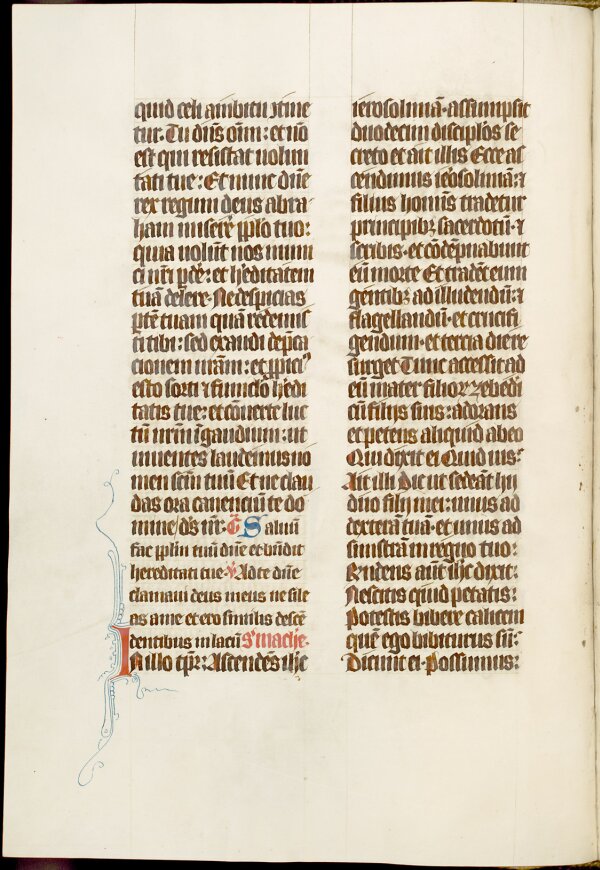 quid celi ambitu ꝯtine
tur. Tu dn̄s om̄: et nō
est qui resistat uolun
tati tue: Et nunc dn̄e
rex regum deus abra
ham miserē ppl̄o tuo:
quia uolūt nos inimi
ci nr̄i pdē: et heditatem
tuā delere. Ne despicias
ptē tuam quā redemis
ti tibi: sed exaudi dep̄ca
cionem meām: et ppici⁹
esto sorti ⁊ funiclo hedi
tatis tue: et cōuerte luc
tū nr̄m ī gaudium: ut
uiuentes laudemus no
men tuū dn̄e Et ne clau
das ora canenciū te do
mine ds̄ nr̄: C̄ Saluū
fac pplm̄ tuū dn̄e et bn̄dic
hereditati tue. V̄ Ad te dn̄e
clamaui deus meus ne sile
as a me et ero similis descē
dentibus in lacū S' mathe.
In illo tp̄r: Ascendēs ihc̄
ierosolimā. assumpsit
duodecim discipl̄os se
creto et ait illis Ecce as
cendimus ierosolimā: ⁊
filius homīs tradetur
principibꝫ sacerdotū. ⁊
scribis. et cōdēpnabunt
eū morte Et tradēt eum
gentibꝫ ad illudendū: ⁊
flagellandū. et crucifi
gendum. et tercia die re
surget Tunc accessit ad
eū mater filioꝝ zebedei
cū filijs suis: adorans
et petens aliquid ab eo
Qui dixit ei Quid uis:
Ait illi Dic ut sedeāt hij
duo filij mei: unus ad
dexterā tuā. et unus ad
sinistrā in regno tuo:
Rn̄dens aūt ihc̄ dixit:
Nescitis quid petatis:
Potestis bibere calicem
quē ego bibiturus sū:
Dicunt ei. Possumus: